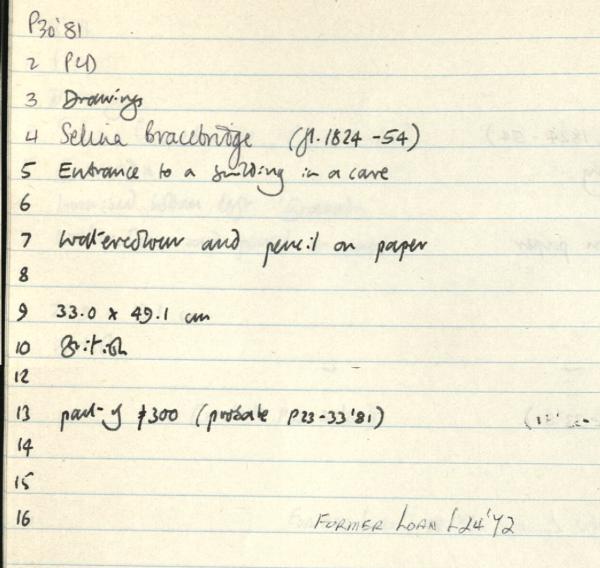 P30'81
2 PCD
3 Drawings
4 Selina Bracebridge (fl. 1824-54)
5 Entrance to a building in a cave
6
7 Watercolour and pencil on paper
8
9 33.0 x 49.1 cm
10 British
12
13 part of £300 (probate P23-33'81)
14
15
16 FORMER LOAN L24'72